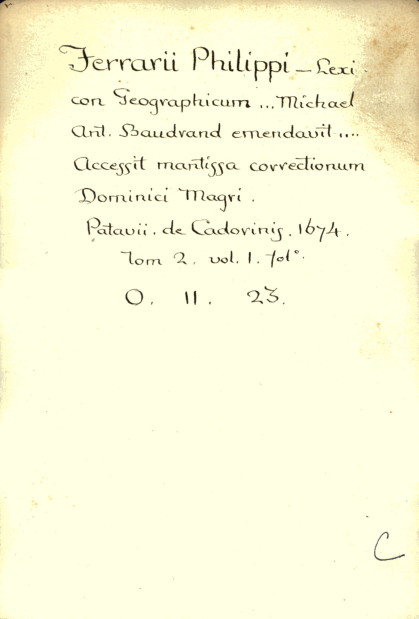 Ferrarii Philippi – Lexi-
con Geographicum ... Michael
Ant. Baudrand emendavit ....
Accessit mantissa correctionum
Dominici Magri.
Patavii. de Cadorinis. 1674.
Tom 2. vol. 1. fol°.
O. 11. 23.
C